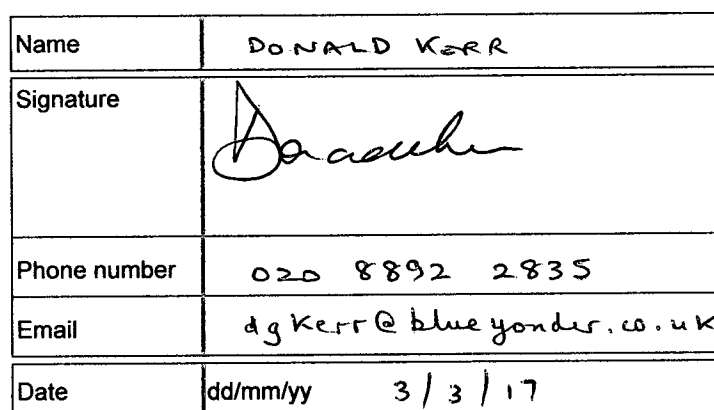 Name DONALD KERR
Signature
Phone number 020 8892 2835
Email dgkerr@blueyonder.co.uk
Date dd/mm/yy 3/3/17